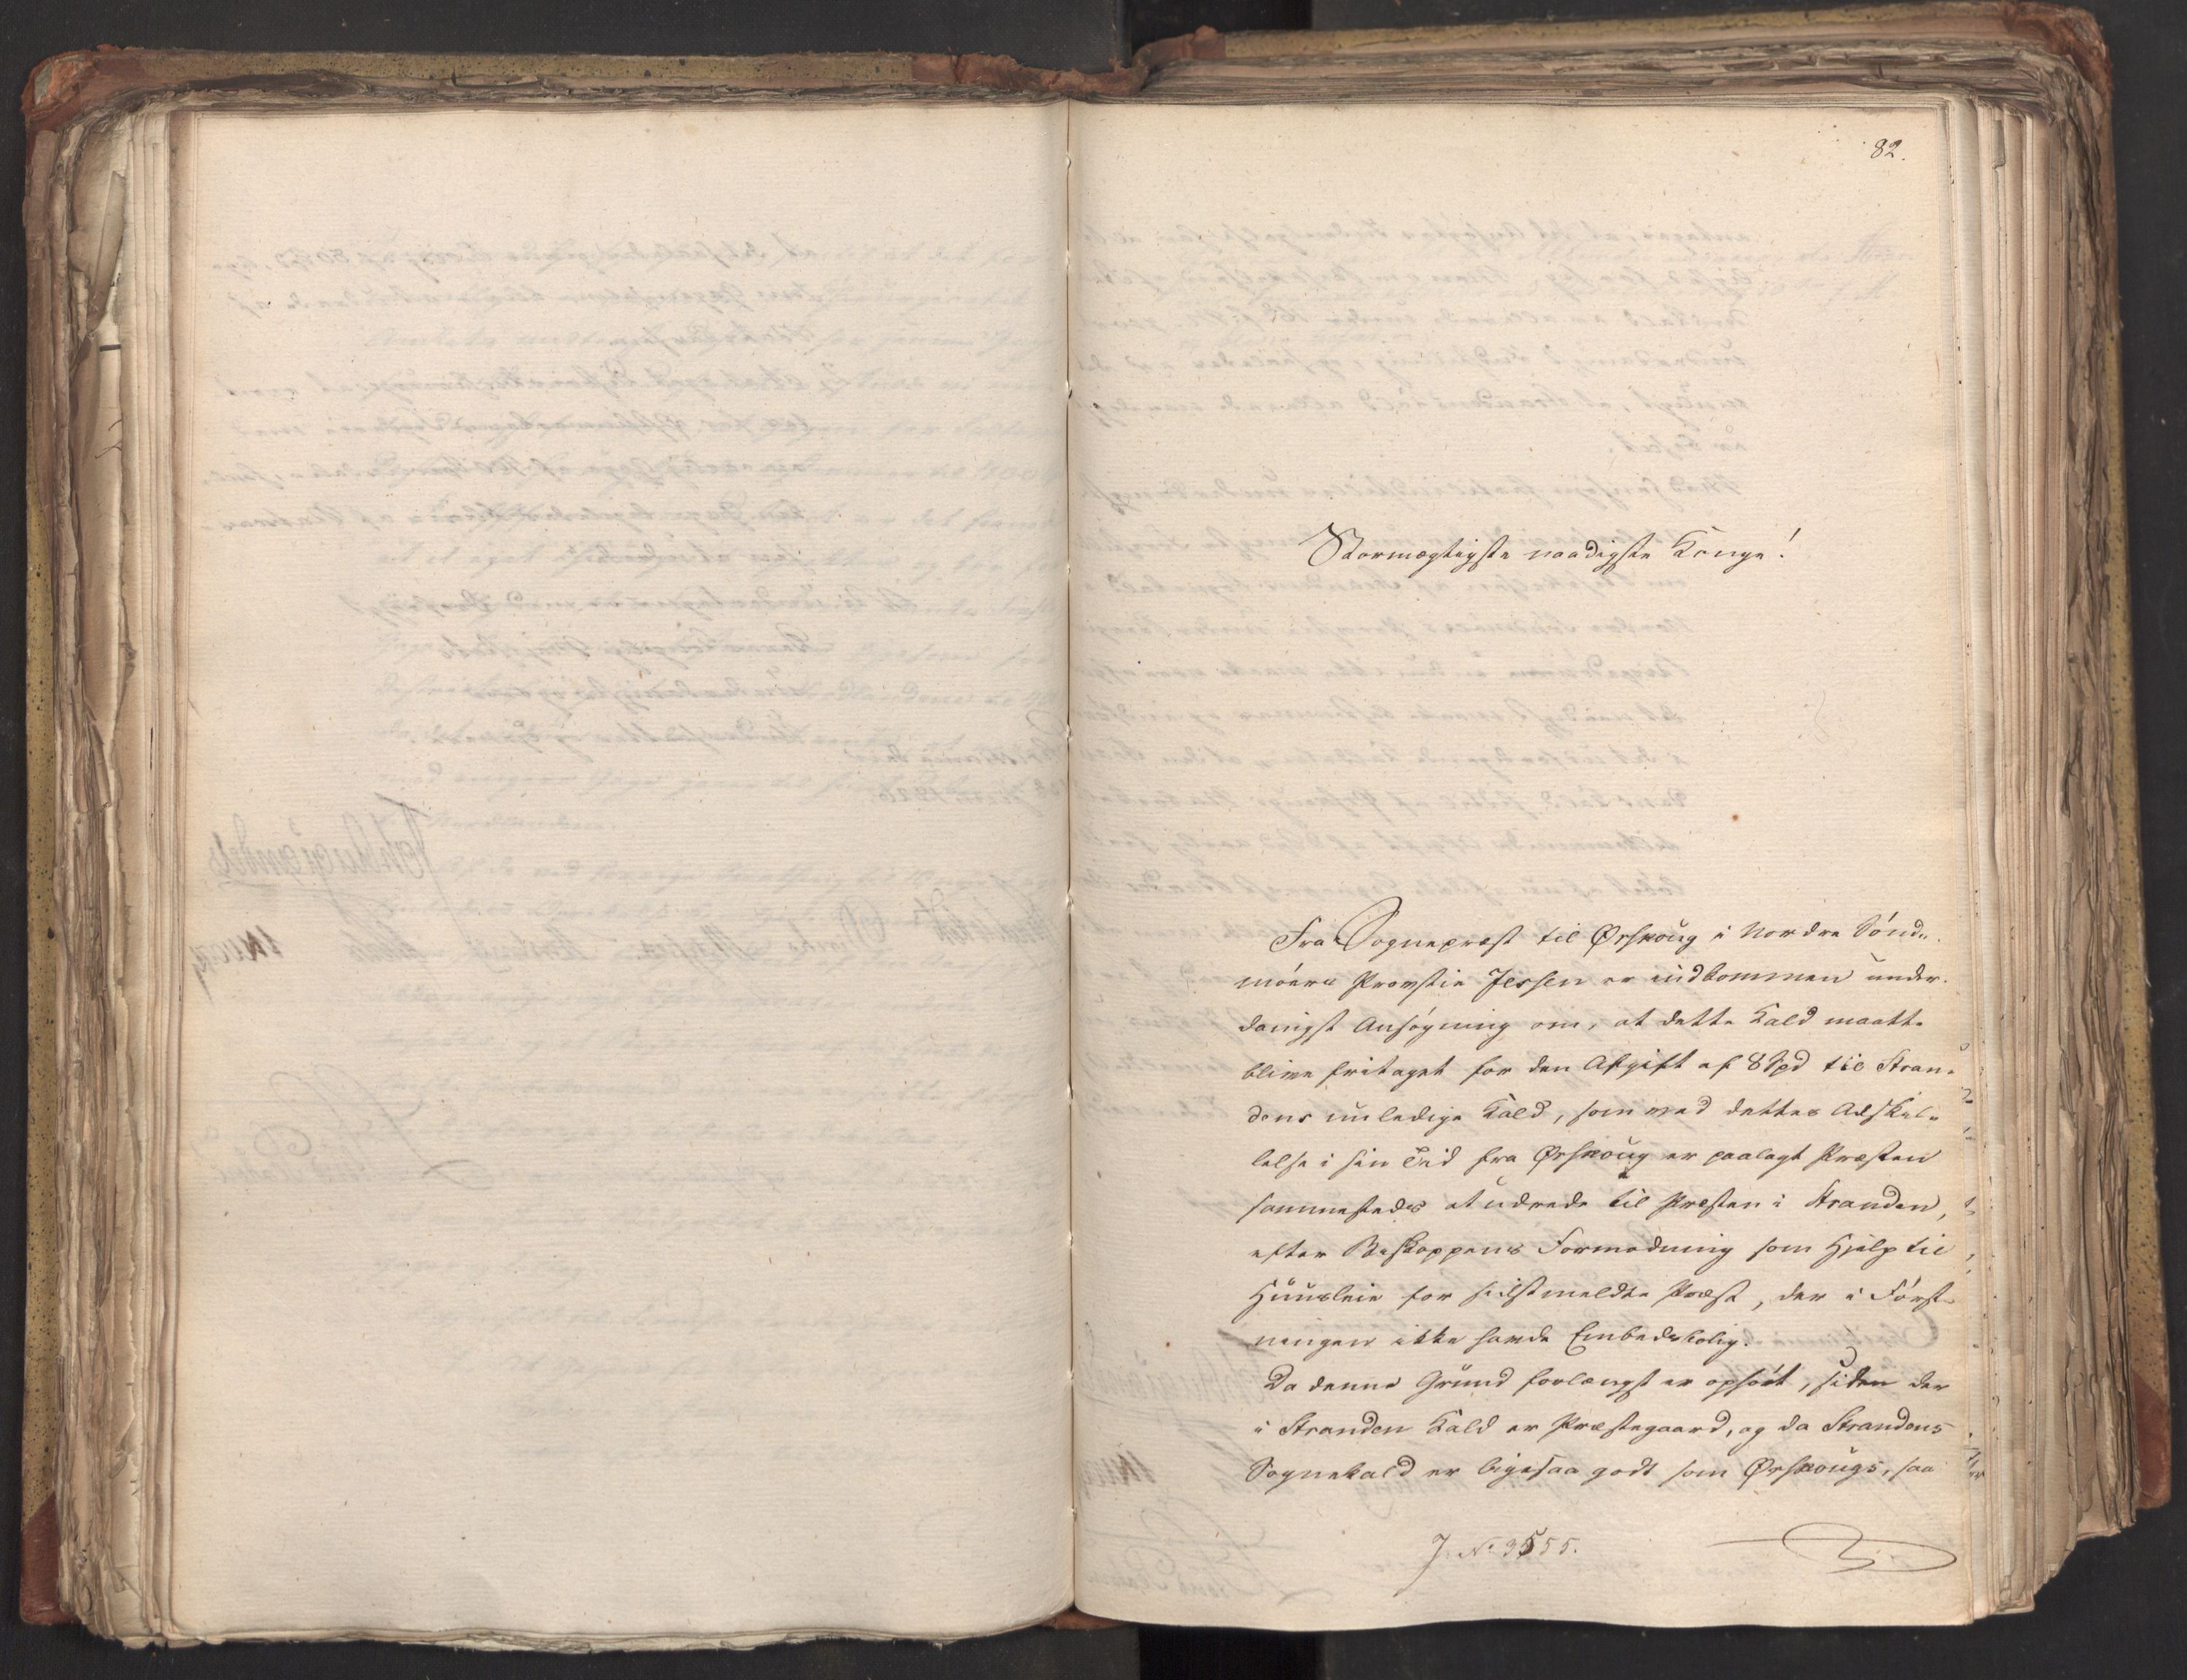 82.
Stormægtigste naadigste Konge!
Fra Sognepræst til Ørskoug i Nordre Sönd-
möers Provstie Jessen er indkommen under-
danigst Ansögning om, at dette Kald maatte
blive fritaget for den Afgift af 8 Spd til Stran-
dens uuledige Kald, som ved dettes Adskil-
lelse i sin Tid fra Ørskoug er paalagt Præsten
sammesteds at udrede til Præsten i Stranden,
efter Biskoppens Formodning som Hjelp til
Huusleie for sidstmeldte Præst, der i Först-
ningen ikke havde Embedsbolig.
Da denne Grund forlængst er ophört, siden der
i Stranden Kald er Præstegaard, og da Strandens
Sognekald er ligesaa godt som Ørskougs, saa
J. No 3555.